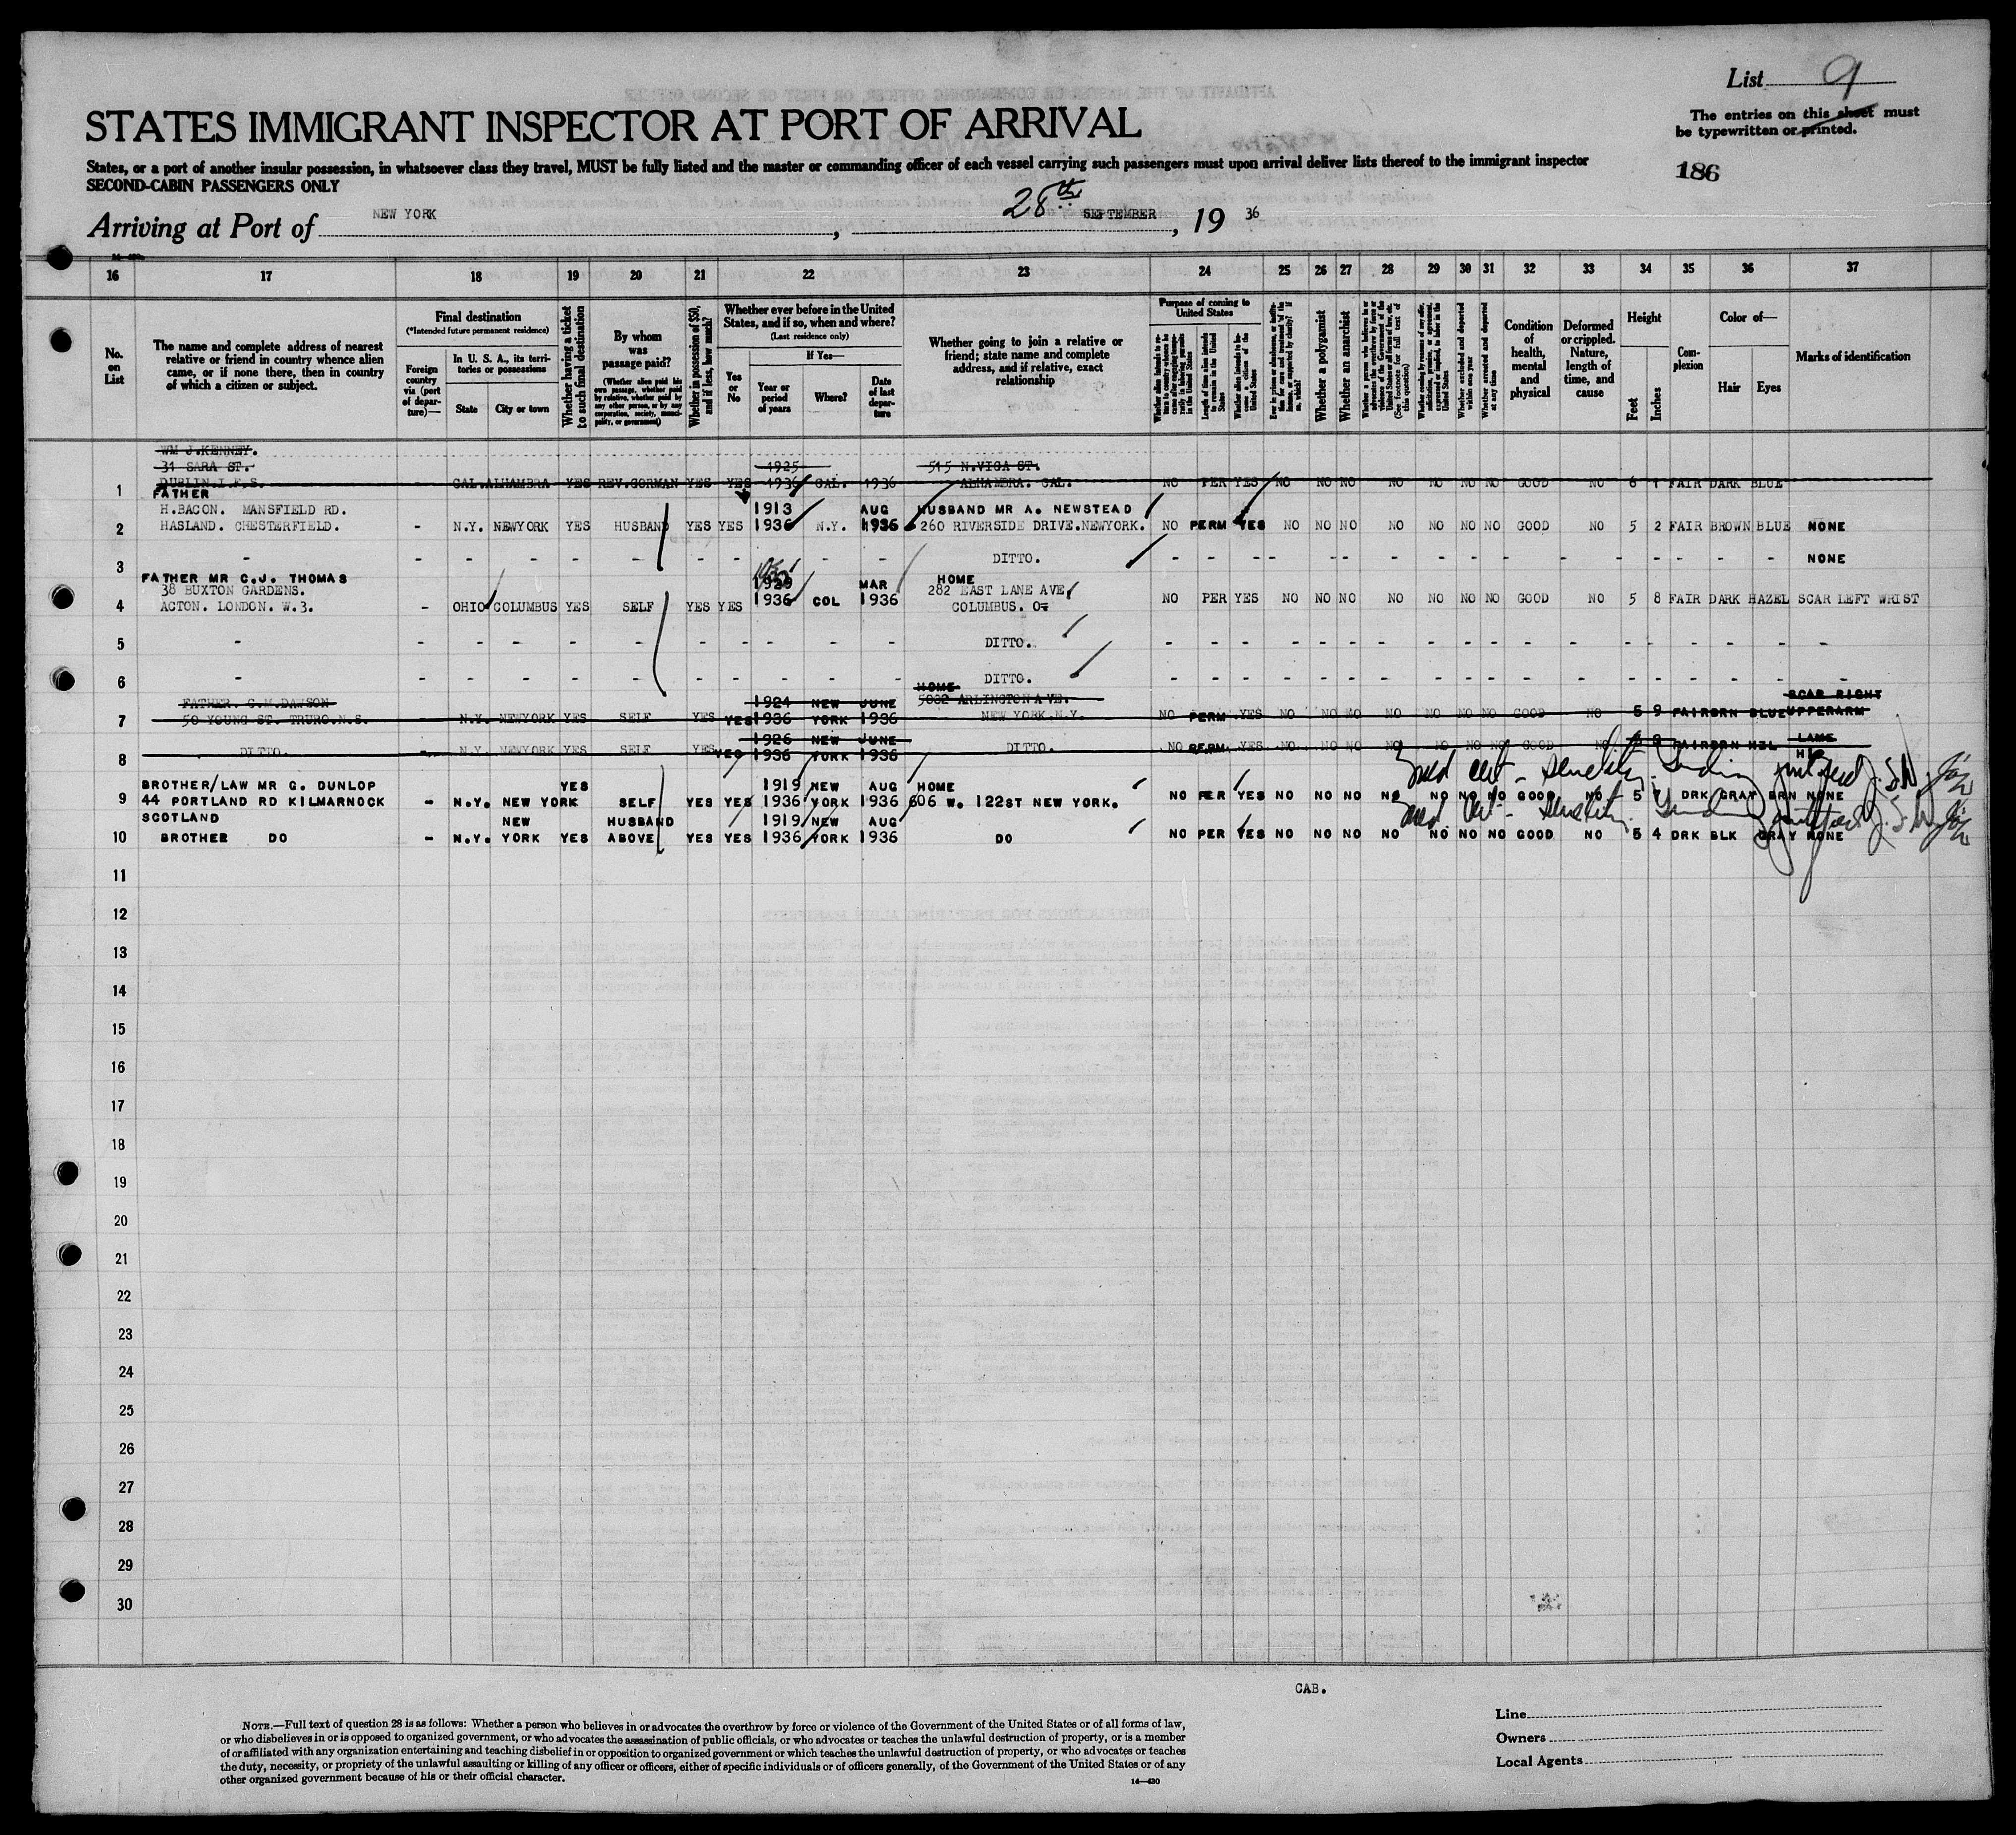 List 9
The entries on this sheet must
be typewritten or printed.
186
STATES IMMIGRANT INSPECTOR AT PORT OF ARRIVAL
States, or a port of another insular possession, in whatsoever class they travel, MUST be fully listed and the master or commanding officer of each vessel carrying such passengers must upon arrival deliver lists thereof to the immigrant inspector
SECOND-CABIN PASSENGERS ONLY
Arriving at Port of NEW YORK, 28th SEPTEMBER, 19 36
16 17 18 19 20 21 22 23 24 25 26 27 28 29 30 31 32 33 34 35 36 37
No. on List
The name and complete address of nearest relative or friend in country whence alien came, or if none there, then in country of which a citizen or subject.
Final destination
(*Intended future permanent residence)
Foreign country via (port of departure)—
In U. S. A., its territories or possessions
State
City or town
Whether having a ticket to such final destination
By whom was passage paid?
(Whether alien paid his own passage, whether paid by relative, whether paid by any other person, or by any corporation, society, municipality, or government)
Whether in possession of $50, and if less, how much?
Whether ever before in the United States, and if so, when and where?
(Last residence only)
Yes or No
If Yes—
Year or period of years
Where?
Date of last departure
Whether going to join a relative or friend; state name and complete address, and if relative, exact relationship
Purpose of coming to United States
Length of time alien intends to remain in the United States
Whether alien intends to become a citizen of the United States
Whether a polygamist
Whether an anarchist
Whether excluded and deported within one year
Whether arrested and deported at any time
Condition of health, mental and physical
Deformed or crippled. Nature, length of time, and cause
Height
Feet
Inches
Complexion
Color of—
Hair
Eyes
Marks of identification
WM J.KENNEY.
31 SARA ST. 1925 515 N.VIGA ST.
1 DUBLIN.I.F.S. CAL. ALHAMBRA YES REV.GORMAN YES YES 1936 CAL. 1936 ALHAMBRA. CAL. NO PER YES NO NO NO NO NO NO NO GOOD NO 6 1 FAIR DARK BLUE
FATHER
H.BACON. MANSFIELD RD. 1913 AUG HUSBAND MR A. NEWSTEAD
2 HASLAND. CHESTERFIELD. - N.Y. NEWYORK YES HUSBAND YES YES 1936 N.Y. 1936 260 RIVERSIDE DRIVE.NEWYORK. NO PERM YES NO NO NO NO NO NO NO GOOD NO 5 2 FAIR BROWN BLUE NONE
3 - - - - - - - - - - - DITTO. - - - - - - - - - - - - - - - - - NONE
FATHER MR C.J. THOMAS HOME
38 BUXTON GARDENS. 1929 MAR 282 EAST LANE AVE
4 ACTON. LONDON. W.3. - OHIO COLUMBUS YES SELF YES YES 1936 COL 1936 COLUMBUS. O. NO PER YES NO NO NO NO NO NO NO GOOD NO 5 8 FAIR DARK HAZEL SCAR LEFT WRIST
5 - - - - - - - - - - - DITTO. - - - - - - - - - - - - - - - - - -
6 - - - - - - - - - - DITTO. - - - - - - - - - - - - - - - - - -
HOME
FATHER. C.M.DAWSON 1924 NEW JUNE 5032 ARLINGTON AVE. SCAR RIGHT
7 50 YOUNG ST. TRURO.N.S. - N.Y. NEWYORK YES SELF YES YES 1936 YORK 1936 NEW YORK.N.Y. NO PERM YES NO NO NO NO NO NO NO GOOD NO 5 9 FAIR BRN BLUE UPPERARM
1926 NEW JUNE LAME
8 DITTO. - N.Y. NEWYORK YES SELF YES YES 1936 YORK 1936 DITTO. NO PERM YES NO NO NO NO NO NO NO GOOD NO 5 3 FAIR BRN HZL HIP
Med cert - Senility.
BROTHER/LAW MR G. DUNLOP YES 1919 NEW AUG HOME
9 44 PORTLAND RD KILMARNOCK - N.Y. NEW YORK SELF YES YES 1936 YORK 1936 606 W. 122ST NEW YORK. NO PER YES NO NO NO NO NO NO NO GOOD NO 5 7 DRK GRAY BRN NONE
Med Cert - Senility.
SCOTLAND NEW HUSBAND 1919 NEW AUG
10 BROTHER DO - N.Y. YORK YES ABOVE YES YES 1936 YORK 1936 DO NO PER YES NO NO NO NO NO NO NO GOOD NO 5 4 DRK BLK GRAY NONE
11
12
13
14
15
16
17
18
19
20
21
22
23
24
25
26
27
28
29
30
CAB.
NOTE.—Full text of question 28 is as follows: Whether a person who believes in or advocates the overthrow by force or violence of the Government of the United States or of all forms of law,
or who disbelieves in or is opposed to organized government, or who advocates the assassination of public officials, or who advocates or teaches the unlawful destruction of property, or is a member
of or affiliated with any organization entertaining and teaching disbelief in or opposition to organized government or which teaches the unlawful destruction of property, or who advocates or teaches
the duty, necessity, or propriety of the unlawful assaulting or killing of any officer or officers, either of specific individuals or of officers generally, of the Government of the United States or of any
other organized government because of his or their official character.
14—430
Line
Owners
Local Agents